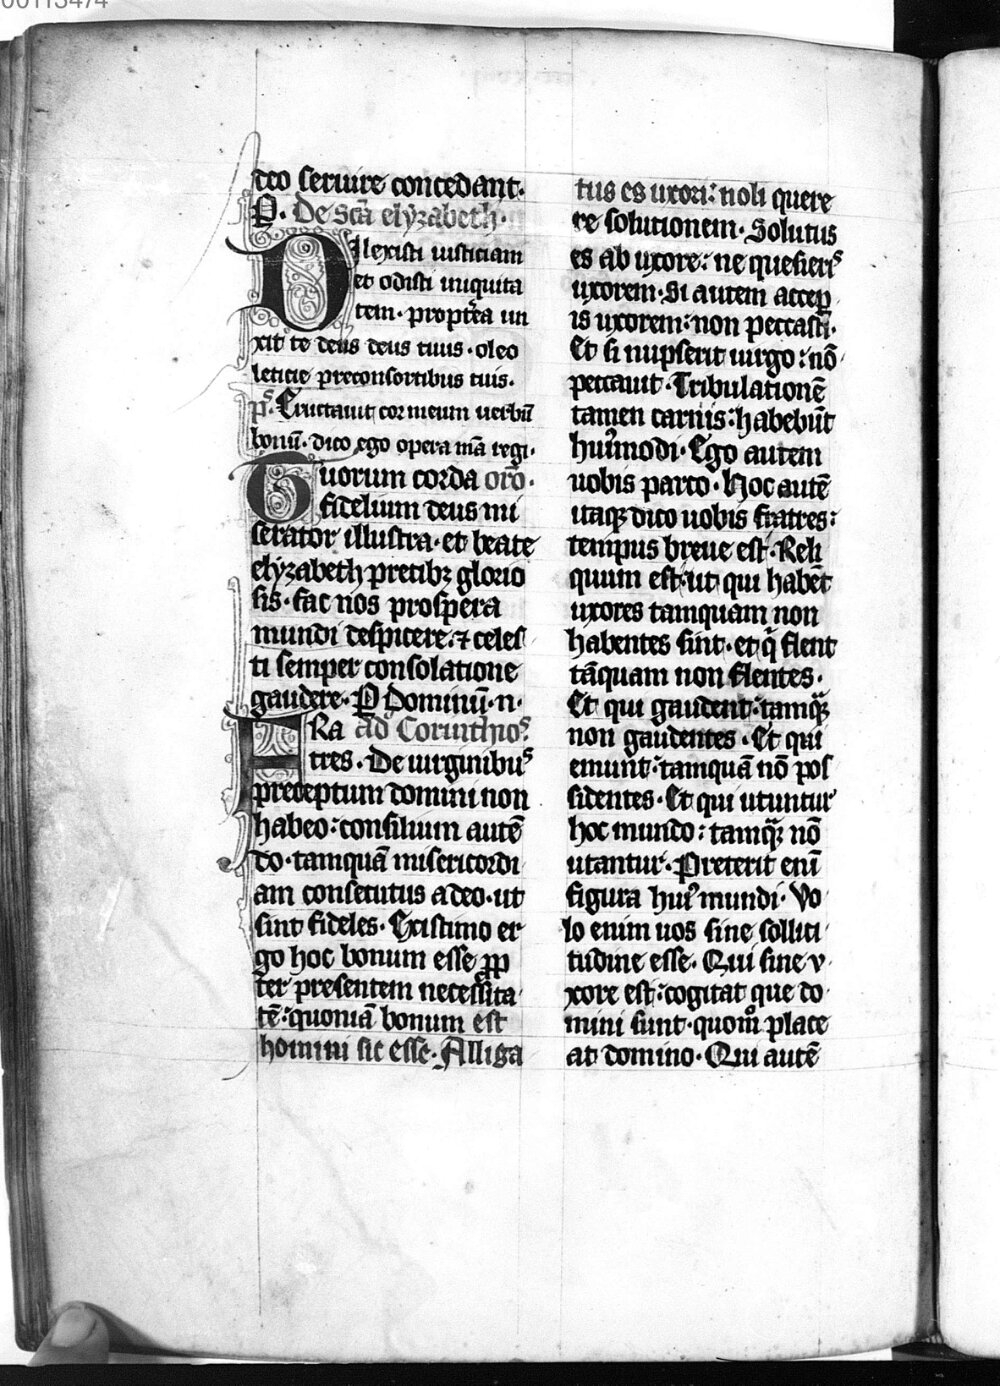 00113474
deo seruire concedant.
P. De scā elyzabeth.
Dilexisti iusticiam
et odisti iniquita
tem. propt̄ea un
xit te deus deus tuus. oleo
leticie preconsortibus tuis.
p̄s. Eructauit cor meum uerbū
bonū. dico ego opera m̄a regi.
Tuorum corda orō.
fidelium deus mi
serator illustra. et beate
elyzabeth precibꝫ glorio
sis. fac nos prospera
mundi despicere. ⁊ celes
ti semper consolatione
gaudere. P Dominū. n.
FRA ad Corinthioꝰ.
tres. De uirginibuꝰ
preceptum domini non
habeo: consilium autē
do. tamquā misericordi
am consecutus a deo. ut
sim fidelis. Existimo er
go hoc bonum esse ꝓp
ter presentem necessita
tē: quoniā bonum est
homini sic esse. Alliga
tus es uxori: noli quere
re solutionem. Solutus
es ab uxore: ne quesierꝰ
uxorem. Si autem accep
is uxorem: non peccasti.
Et si nupserit uirgo: nō
peccauit. Tribulationē
tamen carnis: habebūt
huiꝰmodi. Ego autem
uobis parco. Hoc autē
itaqꝫ dico uobis fratres:
tempus breue est. Reli
quum est. ut qui habēt
uxores tamquam non
habentes sint. et q̄ flent
tāquam non flentes.
Et qui gaudent: tamqꝫ
non gaudentes. Et qui
emunt: tamquā nō pos
sidentes. Et qui utuntur
hoc mundo: tamqꝫ nō
utantur. Preterit enī
figura huiꝰ mundi. Vo
lo enim uos sine sollici
tudine esse. Qui sine v
xore est: cogitat que do
mini sunt. quom̊ place
at domino. Qui autē